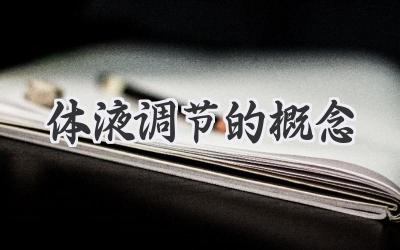 体液调节的概念